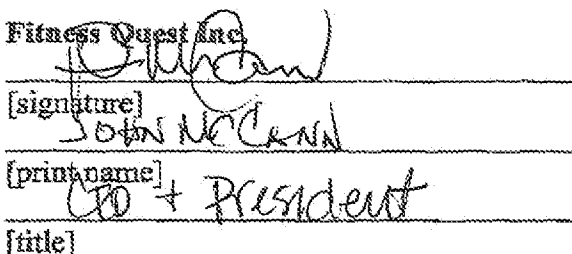 Fitness Quest Inc.
[signature]
JOHN MCCANN
[print name]
+ President
[title]